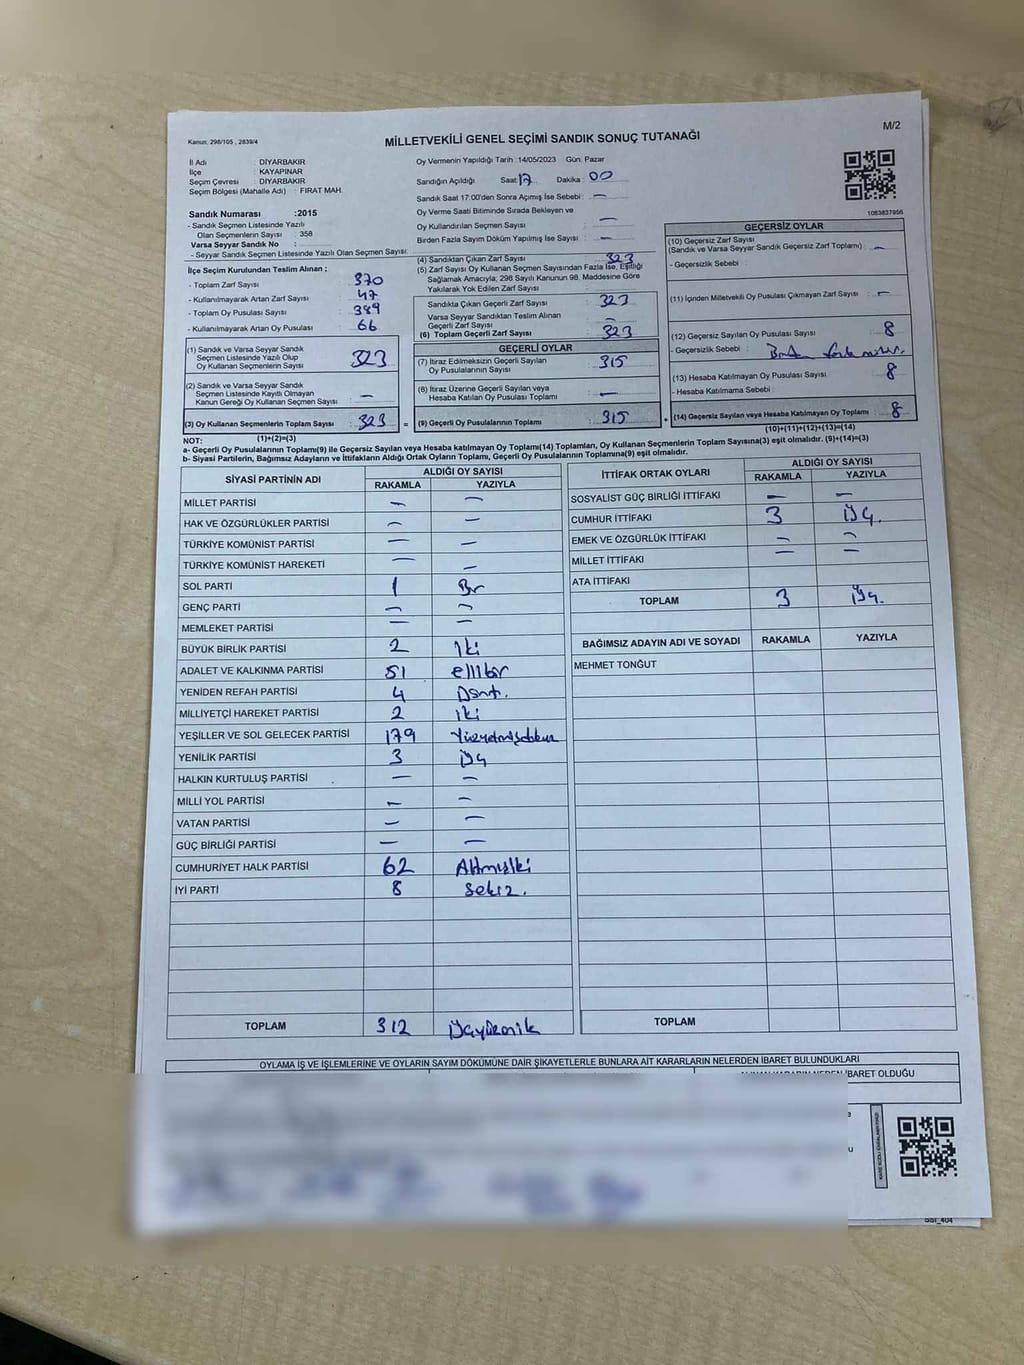 M/2
Kanun: 298/105 , 2839/4
MİLLETVEKİLİ GENEL SEÇİMİ SANDIK SONUÇ TUTANAĞI
İl Adı : DİYARBAKIR
İlçe : KAYAPINAR
Seçim Çevresi : DİYARBAKIR
Seçim Bölgesi (Mahalle Adı) : FIRAT MAH.
Sandık Numarası :2015
- Sandık Seçmen Listesinde Yazılı
Olan Seçmenlerin Sayısı : 358
Varsa Seyyar Sandık No :
- Seyyar Sandık Seçmen Listesinde Yazılı Olan Seçmen Sayısı:
Oy Vermenin Yapıldığı Tarih :14/05/2023 Gün: Pazar
Sandığın Açıldığı Saat: 17 Dakika : 00
Sandık Saat 17:00'den Sonra Açımış İse Sebebi : —
Oy Verme Saati Bitiminde Sırada Bekleyen ve
Oy Kullandırılan Seçmen Sayısı —
Birden Fazla Sayım Döküm Yapılmış İse Sayısı : —
1083837956
İlçe Seçim Kurulundan Teslim Alınan ;
- Toplam Zarf Sayısı : 370
- Kullanılmayarak Artan Zarf Sayısı : 47
- Toplam Oy Pusulası Sayısı : 389
- Kullanılmayarak Artan Oy Pusulası : 66
(1) Sandık ve Varsa Seyyar Sandık
Seçmen Listesinde Yazılı Olup
Oy Kullanan Seçmenlerin Sayısı : 323
(2) Sandık ve Varsa Seyyar Sandık
Seçmen Listesinde Kayıtlı Olmayan
Kanun Gereği Oy Kullanan Seçmen Sayısı : —
(3) Oy Kullanan Seçmenlerin Toplam Sayısı : 323
(1)+(2)=(3)
(4) Sandıktan Çıkan Zarf Sayısı : 323
(5) Zarf Sayısı Oy Kullanan Seçmen Sayısından Fazla İse, Eşitliği
Sağlamak Amacıyla; 298 Sayılı Kanunun 98. Maddesine Göre
Yakılarak Yok Edilen Zarf Sayısı :
Sandıkta Çıkan Geçerli Zarf Sayısı : 323
Varsa Seyyar Sandıktan Teslim Alınan
Geçerli Zarf Sayısı : —
(6) Toplam Geçerli Zarf Sayısı : 323
GEÇERLİ OYLAR
(7) İtiraz Edilmeksizin Geçerli Sayılan
Oy Pusulalarının Sayısı : 315
(8) İtiraz Üzerine Geçerli Sayılan veya
Hesaba Katılan Oy Pusulaları Toplamı : —
= (9) Geçerli Oy Pusulalarının Toplamı : 315 +
GEÇERSİZ OYLAR
(10) Geçersiz Zarf Sayısı
(Sandık ve Varsa Seyyar Sandık Geçersiz Zarf Toplamı) : —
- Geçersizlik Sebebi :
(11) İçinden Milletvekili Oy Pusulası Çıkmayan Zarf Sayısı : —
(12) Geçersiz Sayılan Oy Pusulası Sayısı : 8
- Geçersizlik Sebebi :
(13) Hesaba Katılmayan Oy Pusulası Sayısı : 8
- Hesaba Katılmama Sebebi :
(14) Geçersiz Sayılan veya Hesaba Katılmayan Oy Toplamı : 8
(10)+(11)+(12)+(13)=(14)
NOT:
a- Geçerli Oy Pusulalarının Toplamı(9) ile Geçersiz Sayılan veya Hesaba katılmayan Oy Toplamı(14) Toplamları, Oy Kullanan Seçmenlerin Toplam Sayısına(3) eşit olmalıdır. (9)+(14)=(3)
b- Siyasi Partilerin, Bağımsız Adayların ve İttifakların Aldığı Ortak Oyların Toplamı, Geçerli Oy Pusulalarının Toplamına(9) eşit olmalıdır.
SİYASİ PARTİNİN ADI ALDIĞI OY SAYISI
RAKAMLA YAZIYLA
MİLLET PARTİSİ — —
HAK VE ÖZGÜRLÜKLER PARTİSİ — —
TÜRKİYE KOMÜNİST PARTİSİ — —
TÜRKİYE KOMÜNİST HAREKETİ — —
SOL PARTİ 1 Bir
GENÇ PARTİ — —
MEMLEKET PARTİSİ — —
BÜYÜK BİRLİK PARTİSİ 2 İki
ADALET VE KALKINMA PARTİSİ 51 ellibir
YENİDEN REFAH PARTİSİ 4 Dört.
MİLLİYETÇİ HAREKET PARTİSİ 2 iki
YEŞİLLER VE SOL GELECEK PARTİSİ 179 Yüzyetmişdokuz
YENİLİK PARTİSİ 3 üç
HALKIN KURTULUŞ PARTİSİ — —
MİLLİ YOL PARTİSİ — —
VATAN PARTİSİ — —
GÜÇ BİRLİĞİ PARTİSİ — —
CUMHURİYET HALK PARTİSİ 62 Altmışiki
İYİ PARTİ 8 Sekiz.
TOPLAM 312 Üçyüzonik
İTTİFAK ORTAK OYLARI ALDIĞI OY SAYISI
RAKAMLA YAZIYLA
SOSYALİST GÜÇ BİRLİĞİ İTTİFAKI — —
CUMHUR İTTİFAKI 3 üç.
EMEK VE ÖZGÜRLÜK İTTİFAKI — —
MİLLET İTTİFAKI — —
ATA İTTİFAKI
TOPLAM 3 üç.
BAĞIMSIZ ADAYIN ADI VE SOYADI RAKAMLA YAZIYLA
MEHMET TONĞUT
TOPLAM
OYLAMA İŞ VE İŞLEMLERİNE VE OYLARIN SAYIM DÖKÜMÜNE DAİR ŞİKAYETLERLE BUNLARA AİT KARARLARIN NELERDEN İBARET BULUNDUKLARI
İBARET OLDUĞU